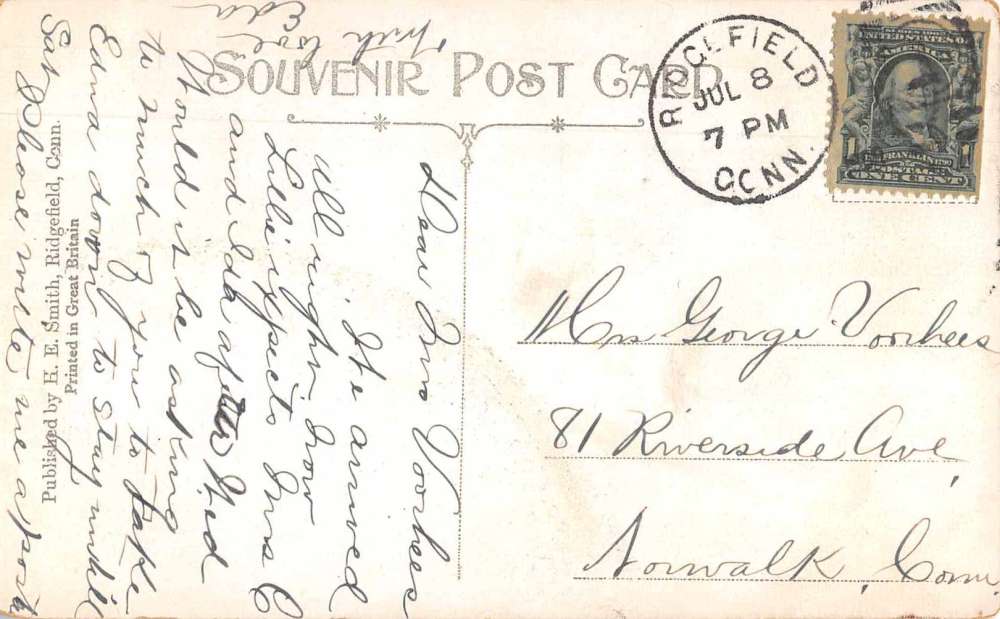 SOUVENIR POST CARD
RIDGEFIELD
JUL 8
7 PM
CONN.
SERIES 1902
UNITED STATES OF
AMERICA
FRANKLIN
POSTAGE
1 ONE CENT 1
Mrs George Voorhees
81 Riverside Ave,
Norwalk, Conn,
Dear Mrs Voorhees
We arrived
All right. Now
Lillie expects Mrs C
and Ida after Wed
Would it be asking
to much of you to take
Edna down to stay untill
Sat Please write me a post
With love
Eda
Published by H. E. Smith, Ridgefield, Conn.
Printed in Great Britain